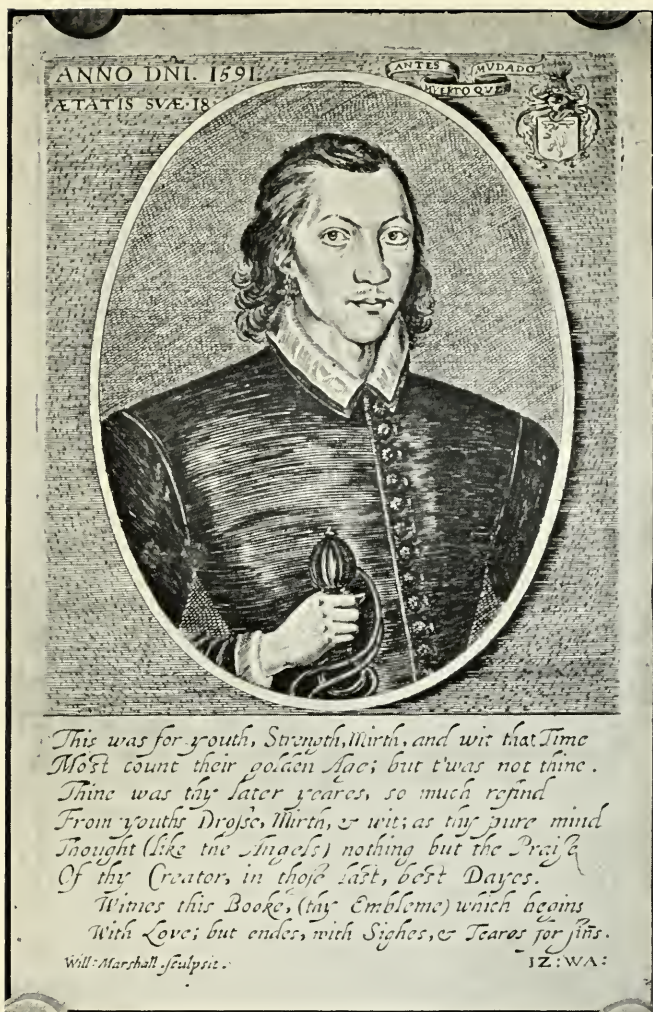 ANNO DNI. 1591.
ÆTATIS SVÆ. 18.
ANTES MUDADO
MVERTO QUE
This was for youth, Strength, Mirth, and wit that Time
Most count their golden Age; but t'was not thine.
Thine was thy later yeares, so much refind
From youths Drosse, Mirth, & wit; as thy pure mind
Thought (like the Angels) nothing but the Praise
Of thy Creator, in those last, best Dayes.
Witnes this Booke, (thy Embleme) which begins
With Love; but endes, with Sighes, & Teares for sins.
Will: Marshall sculpsit.
IZ: WA: